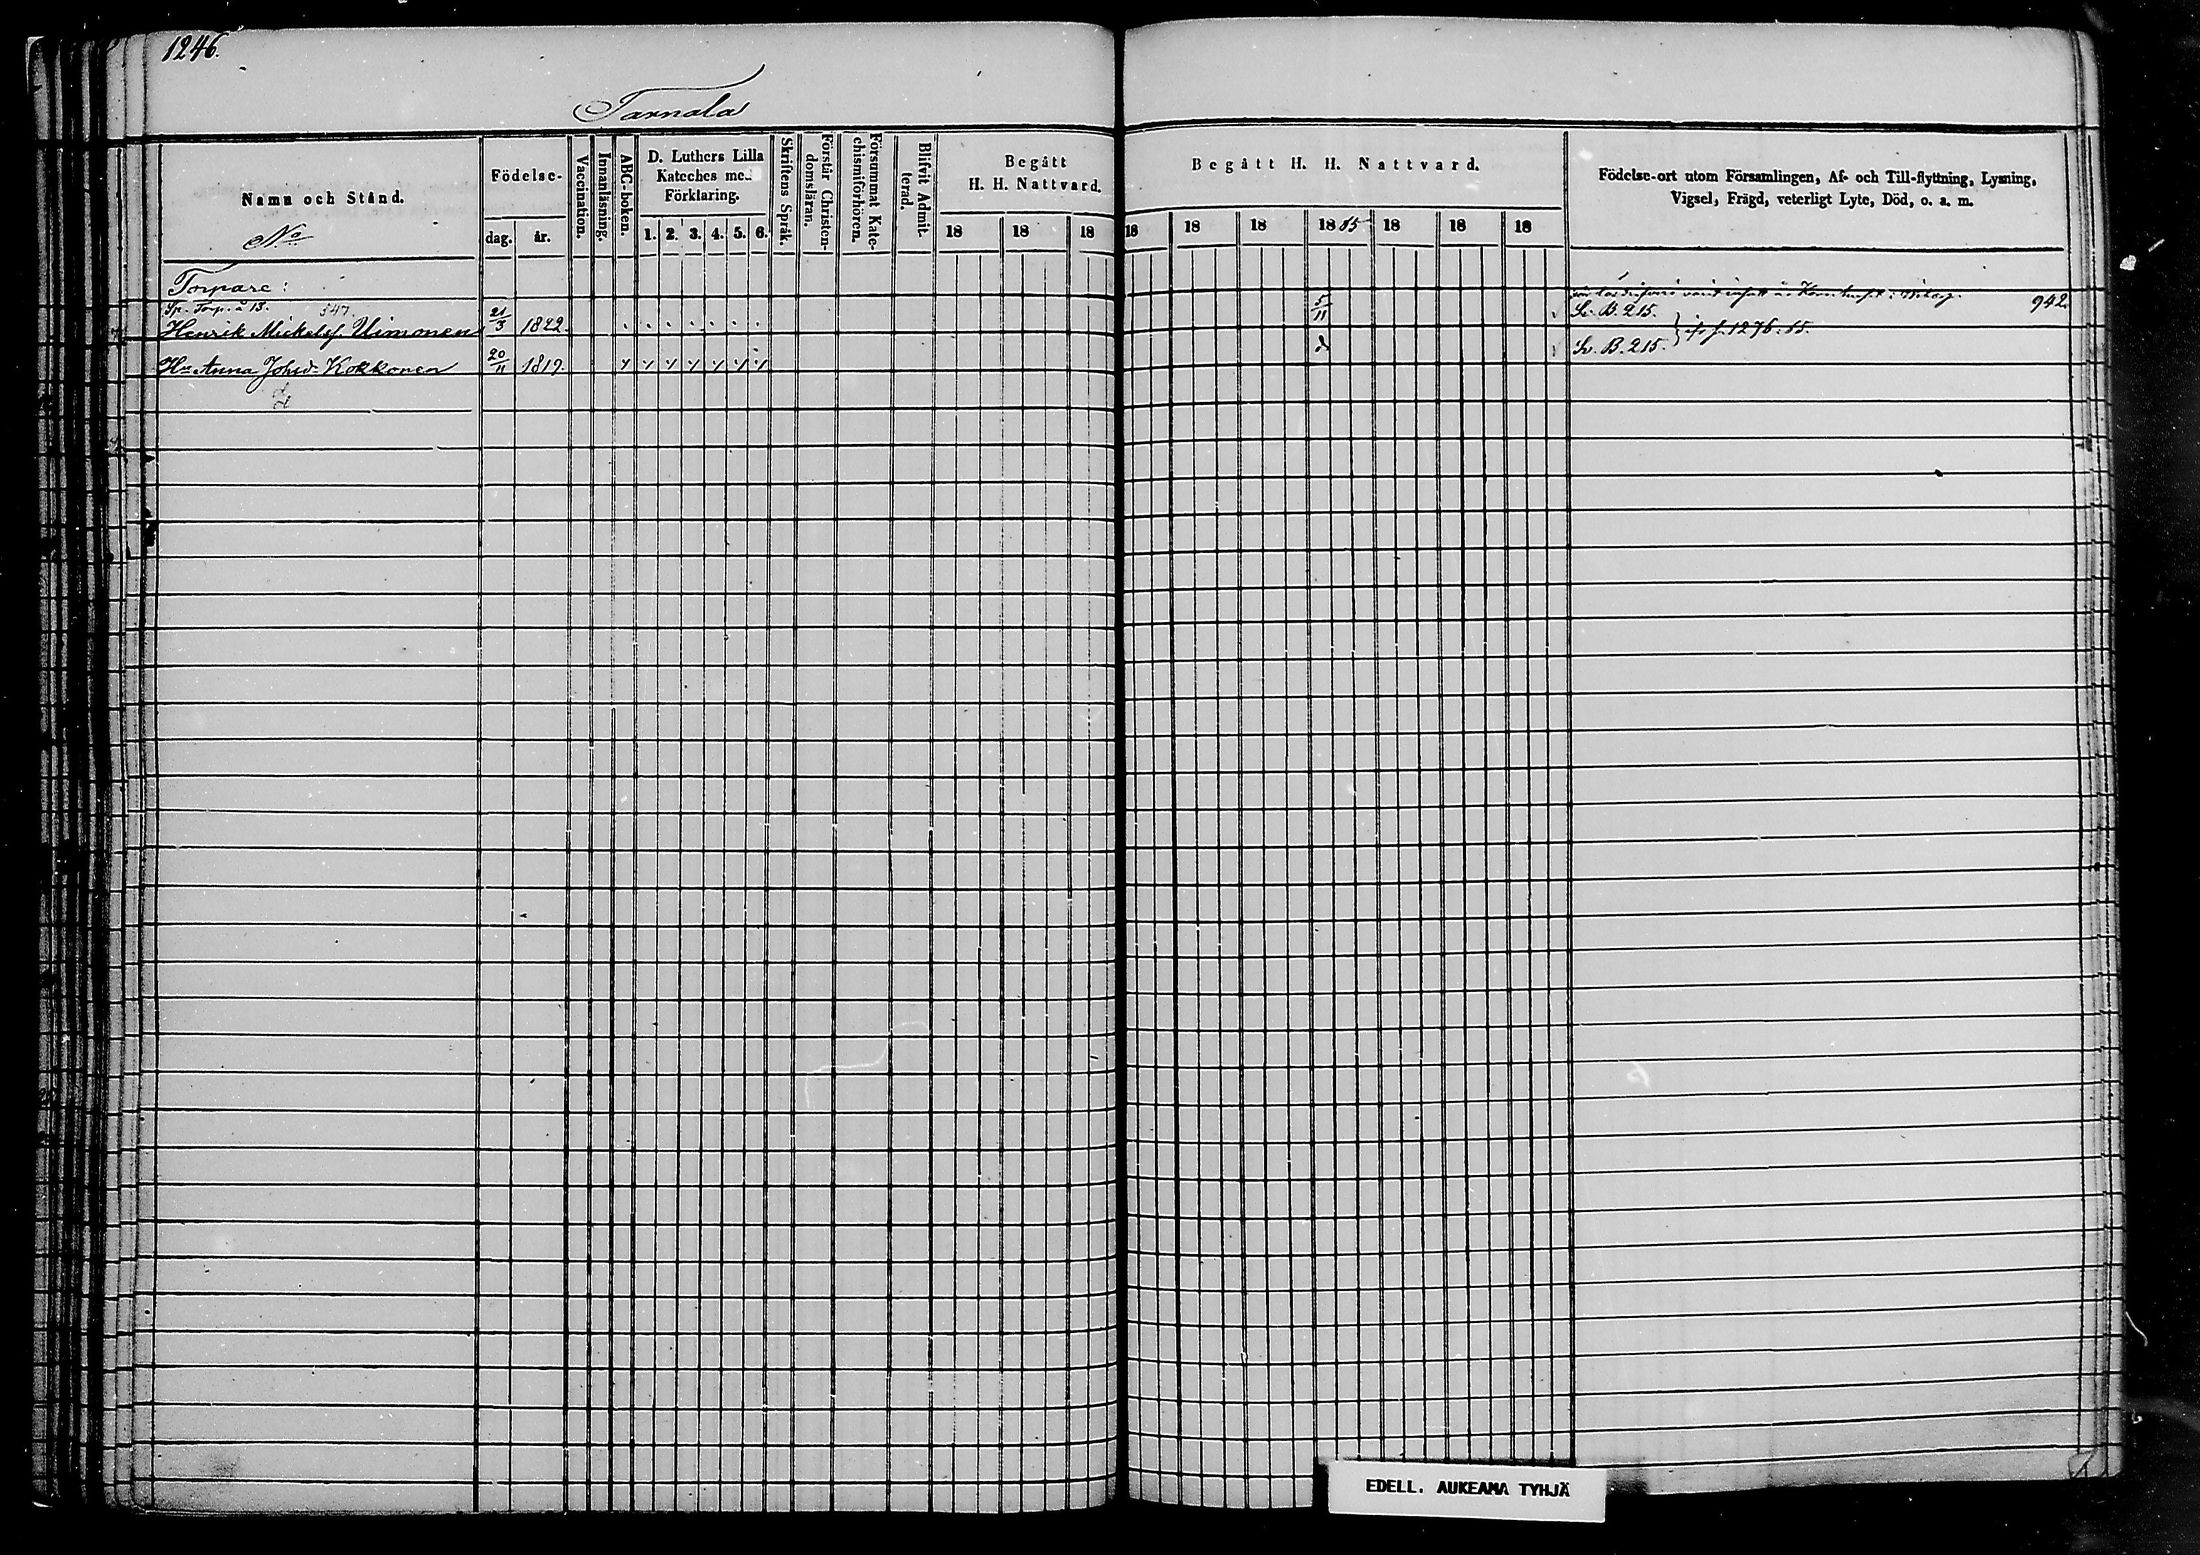 1246.
Tarnala
Namn och Stånd.
No
Födelse-
dag.
år.
Vaccination.
Innanläsning.
ABC-boken.
D. Luthers Lilla
Kateches med
Förklaring.
1. 2. 3. 4. 5. 6.
Skriftens Språk.
Förstår Christen-
domsläran.
Försummat Kate-
chismiförhören.
Blifvit Admit-
terad.
Begått
H. H. Nattvard.
18 18 18
Begått H. H. Nattvard.
18 18 18 1885 18 18 18
Födelse-ort utom Församlingen, Af- och Till-flyttning, Lysning,
Vigsel, Frägd, veterligt Lyte, Död, o. a. m.
Torpare:
Sp. Torp. å 13. 547.
Henrik Mickelsf. Uimonen 21/3 1822. 5/11 Sv. B. 215. 942.
Hu Anna Johsd. Kokkonen 20/11 1819. d Sv. B. 215. 1276. 55.
EDELL. AUKEAMA TYHJÄ